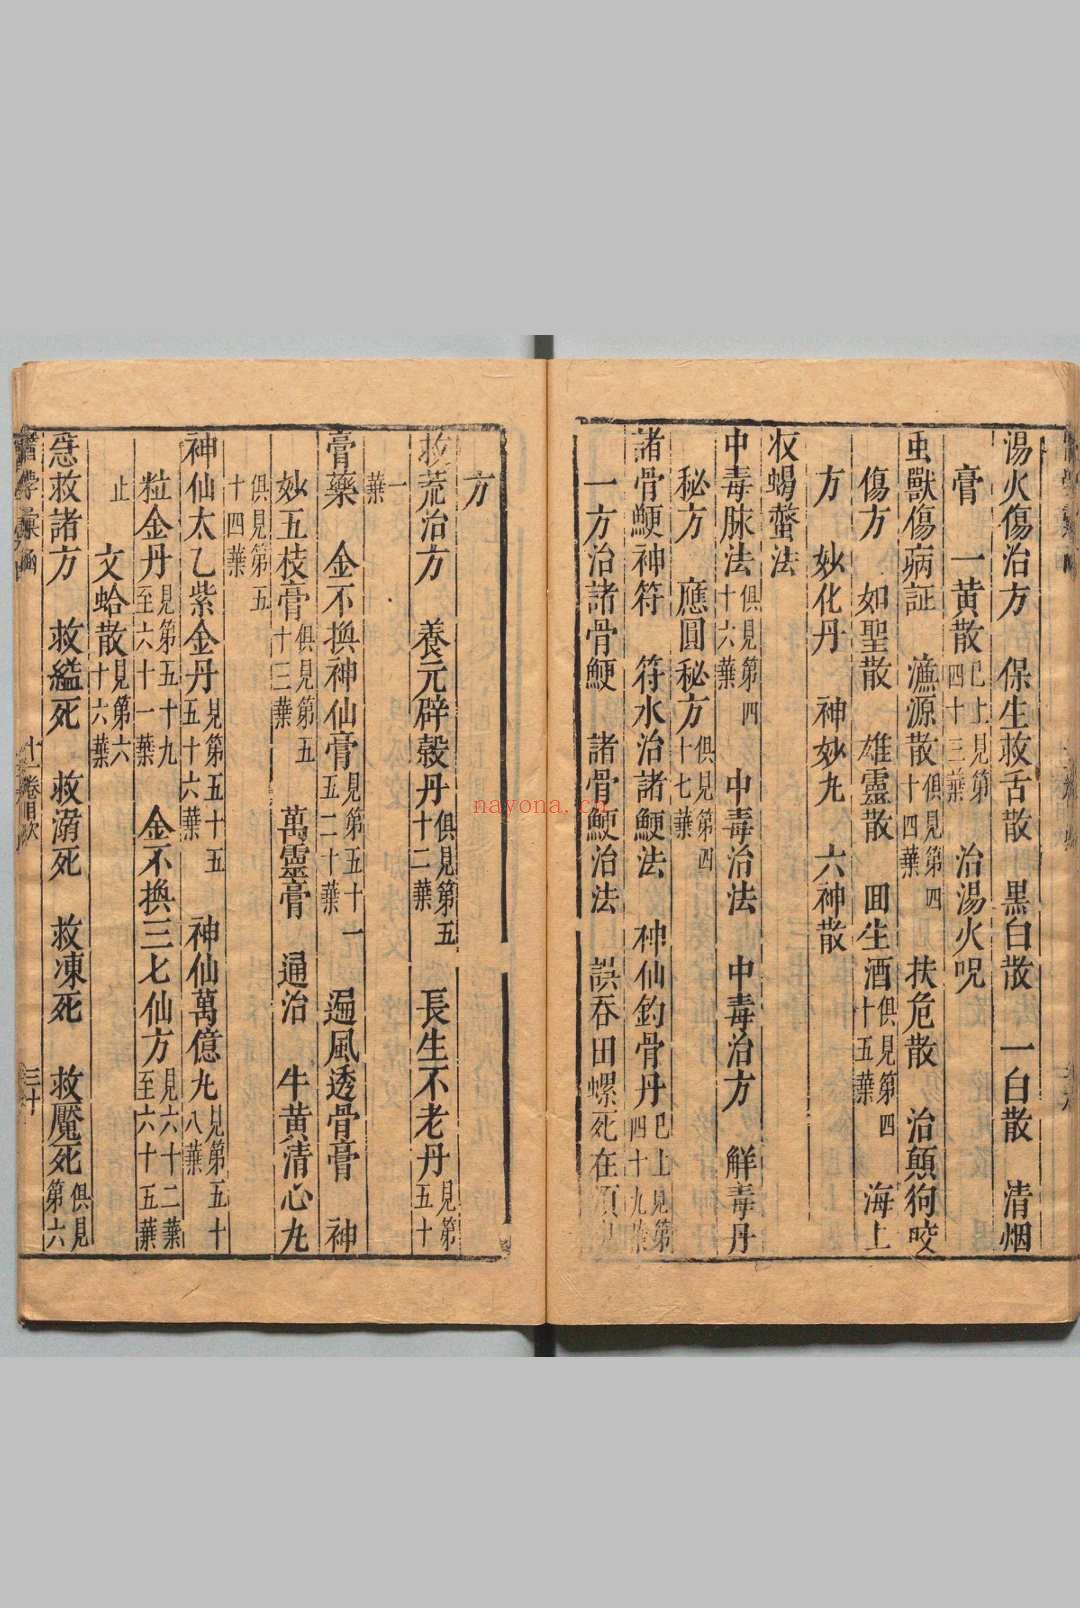 湯火傷治方　保生救舌散　黒白散　一白散　清烟
膏　一黄散已上見第四十三葉　治湯火呪
虫獸傷病証　瀍源散俱見第四十四葉　扶危散　治顛狗咬
傷方　如聖散　雄靈散　囬生酒俱見第四十五葉　海上
方　妙化丹　神妙九　六神散
收蝎螫法
中毒脉法俱見第四十六葉　中毒治法　中毒治方　觧毒丹
秘方　應圓秘方俱見第四十七葉
諸骨鯁神符　符水治諸鯁法　神仙釣骨丹已上見第四十九葉
一方治諸骨鯁　諸骨鯁治法　誤吞田螺死在項
方
救荒治方　養元辟穀丹俱見第五十二葉　長生不老丹見第五十
一葉
膏藥　金不換神仙膏見第五十一五二十葉　遍風透骨膏　神
妙五枝膏俱見第五十三葉　萬靈膏　通治　牛黄清心九
俱見第五十四葉
神仙太乙紫金丹見第五十五五十六葉　神仙萬億九見第五十八葉
粒金丹見第五十九至六十一葉　金不換三七仙方見六十二葉至六十五葉
止　文蛤散見第六十六葉
急救諸方　救縊死　救溺死　救凍死　救魘死俱見第六
十一卷目次
三十
nayona.cn